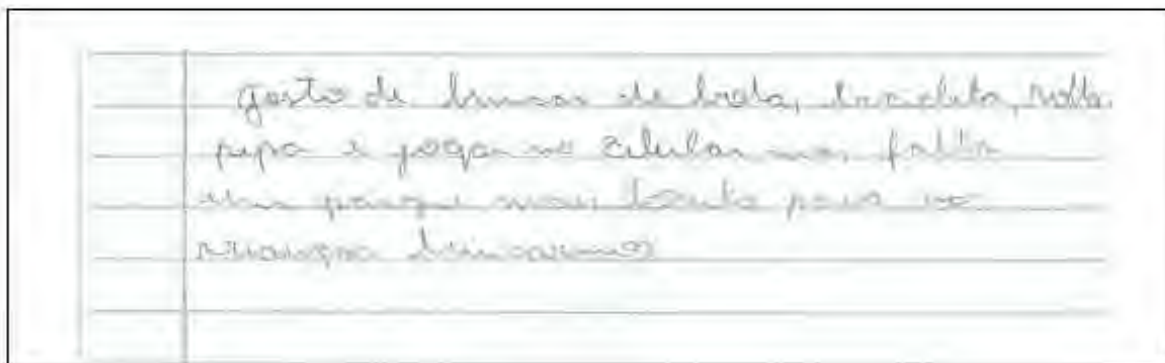 gosto de brincar de bola, bicicleta, solta
pipa e jogar no celular mas falta
um parque mais bonito para as
crianças brincarmos